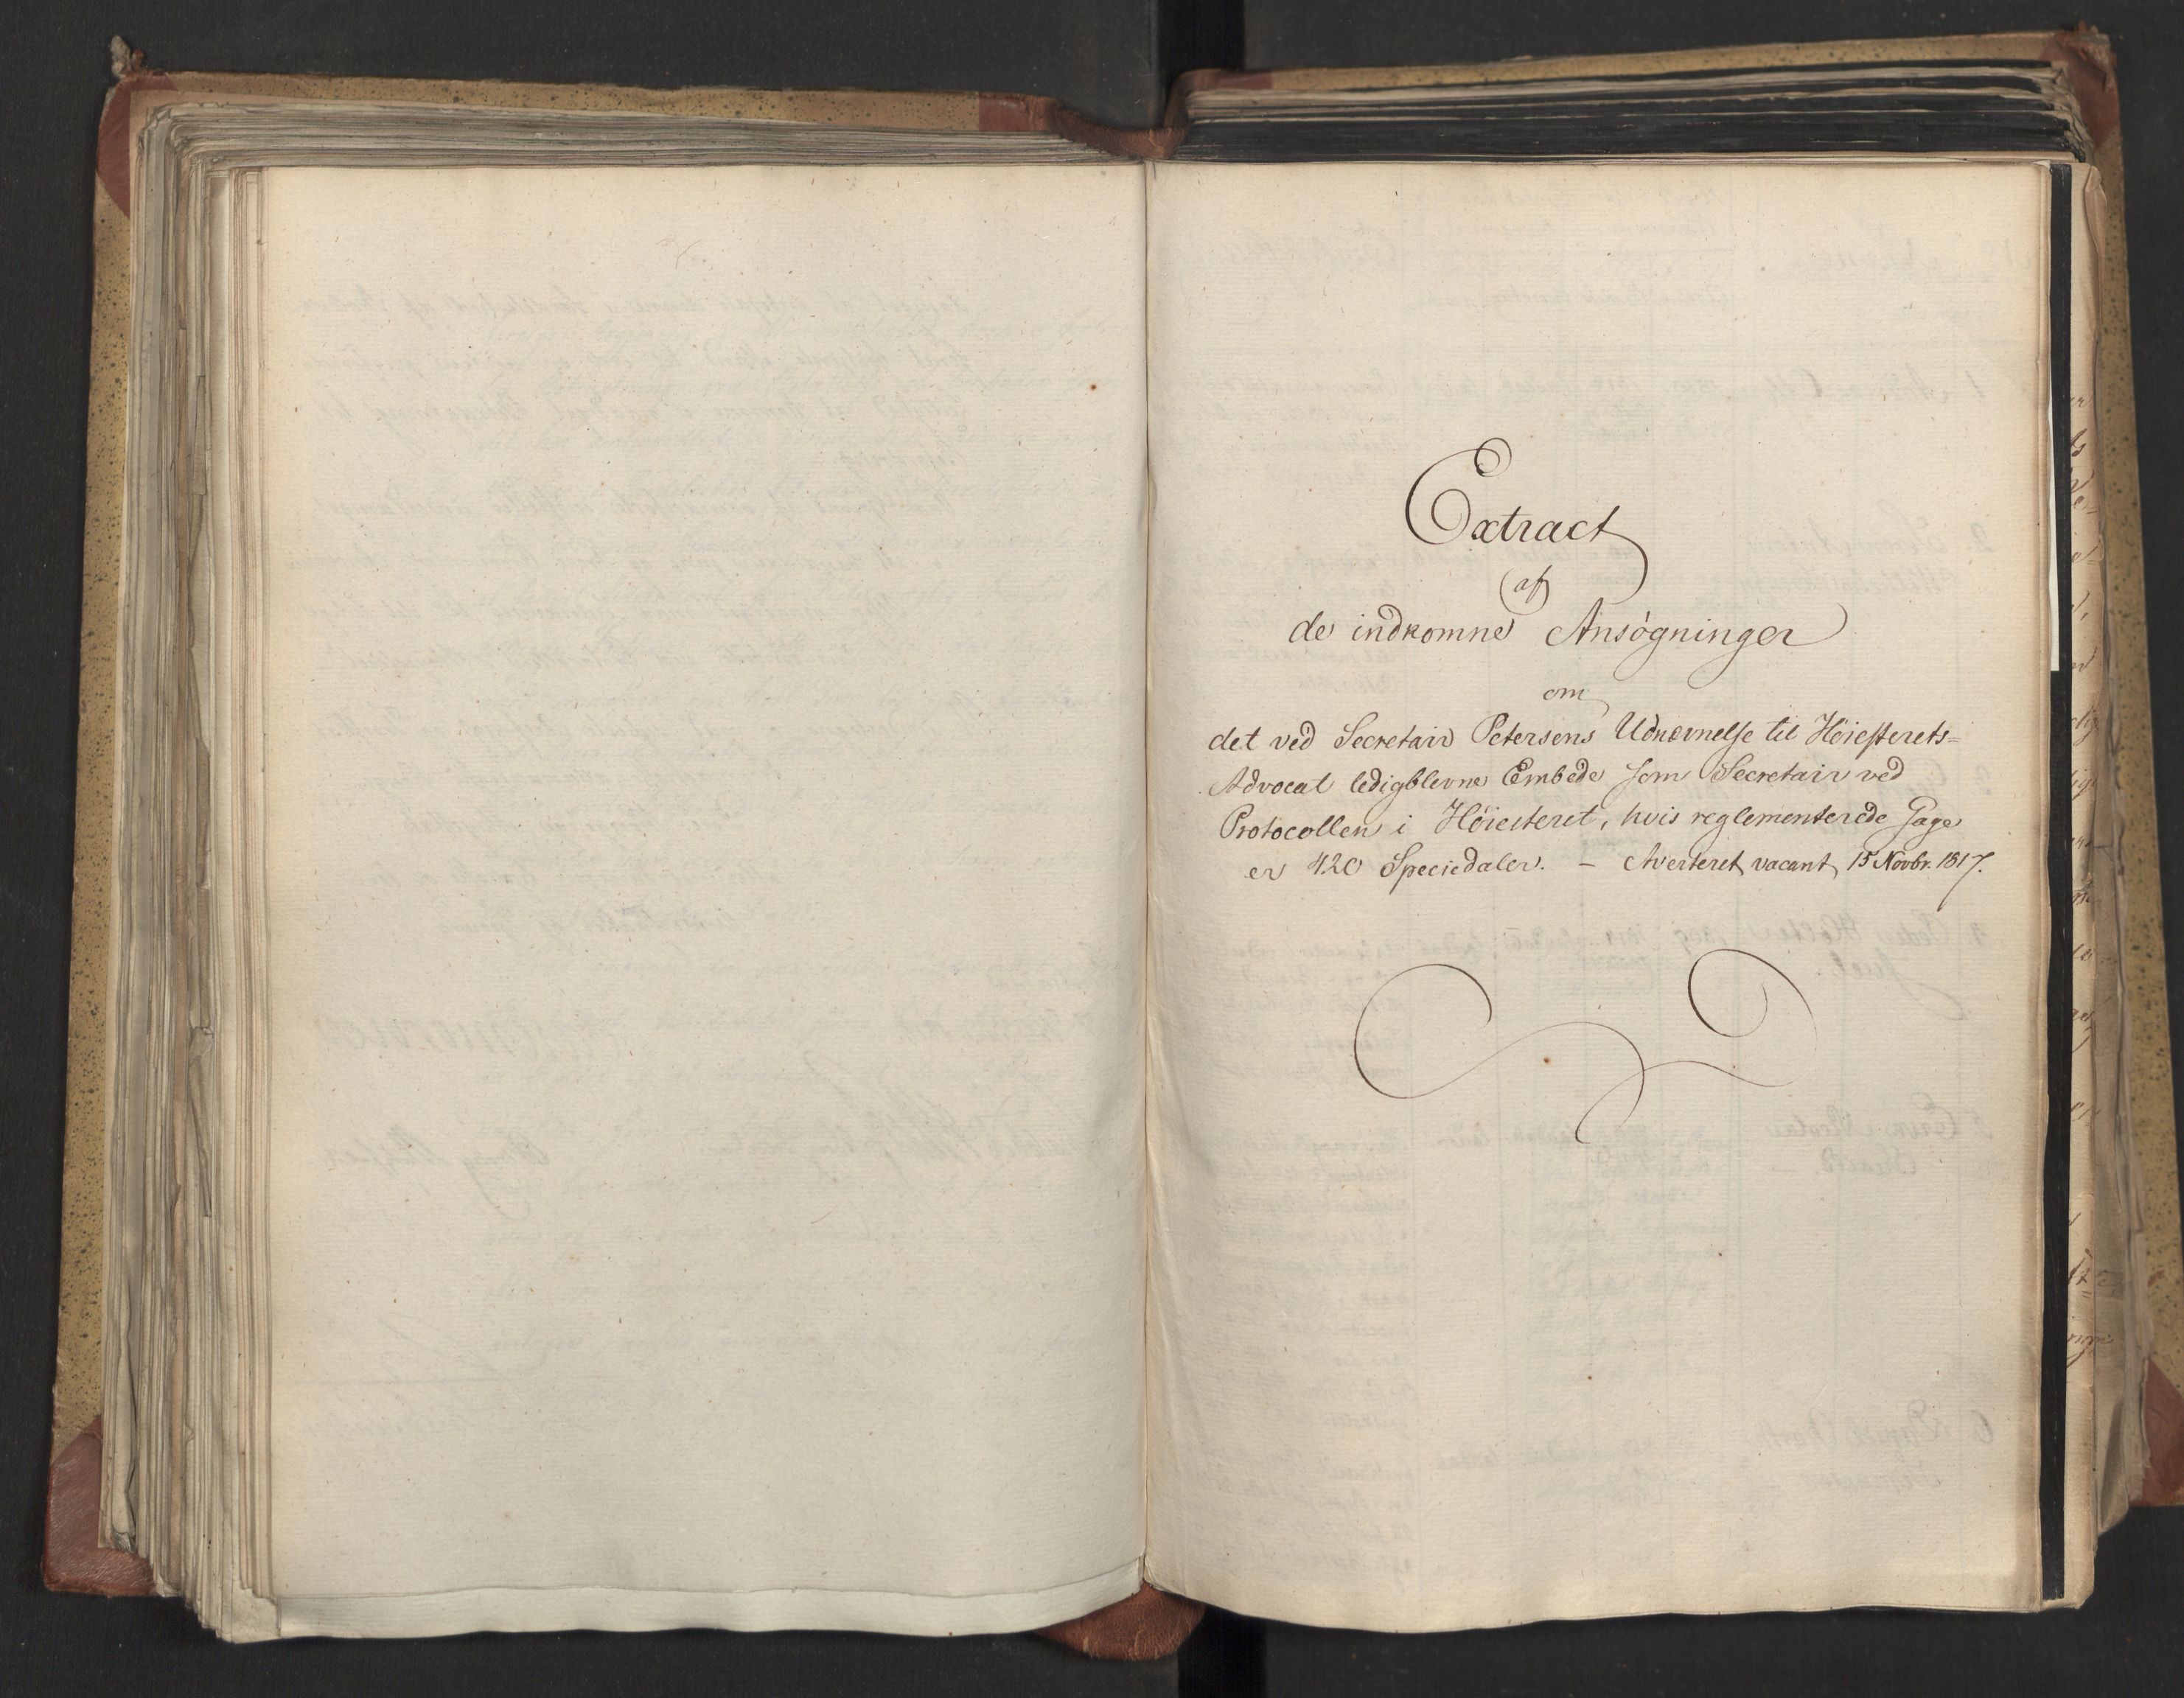 Extract
af
de indkomne Ansøgninger
om
det ved Secretair Petersens Udnævnelse til Høiesterets=
Advocat ledigblevne Embede som Secretair ved
Protocollen i Høiesteret, hvis reglementerede Gage
er 420 Speciedaler. – Averteret vacant 15 Novbr. 1817.